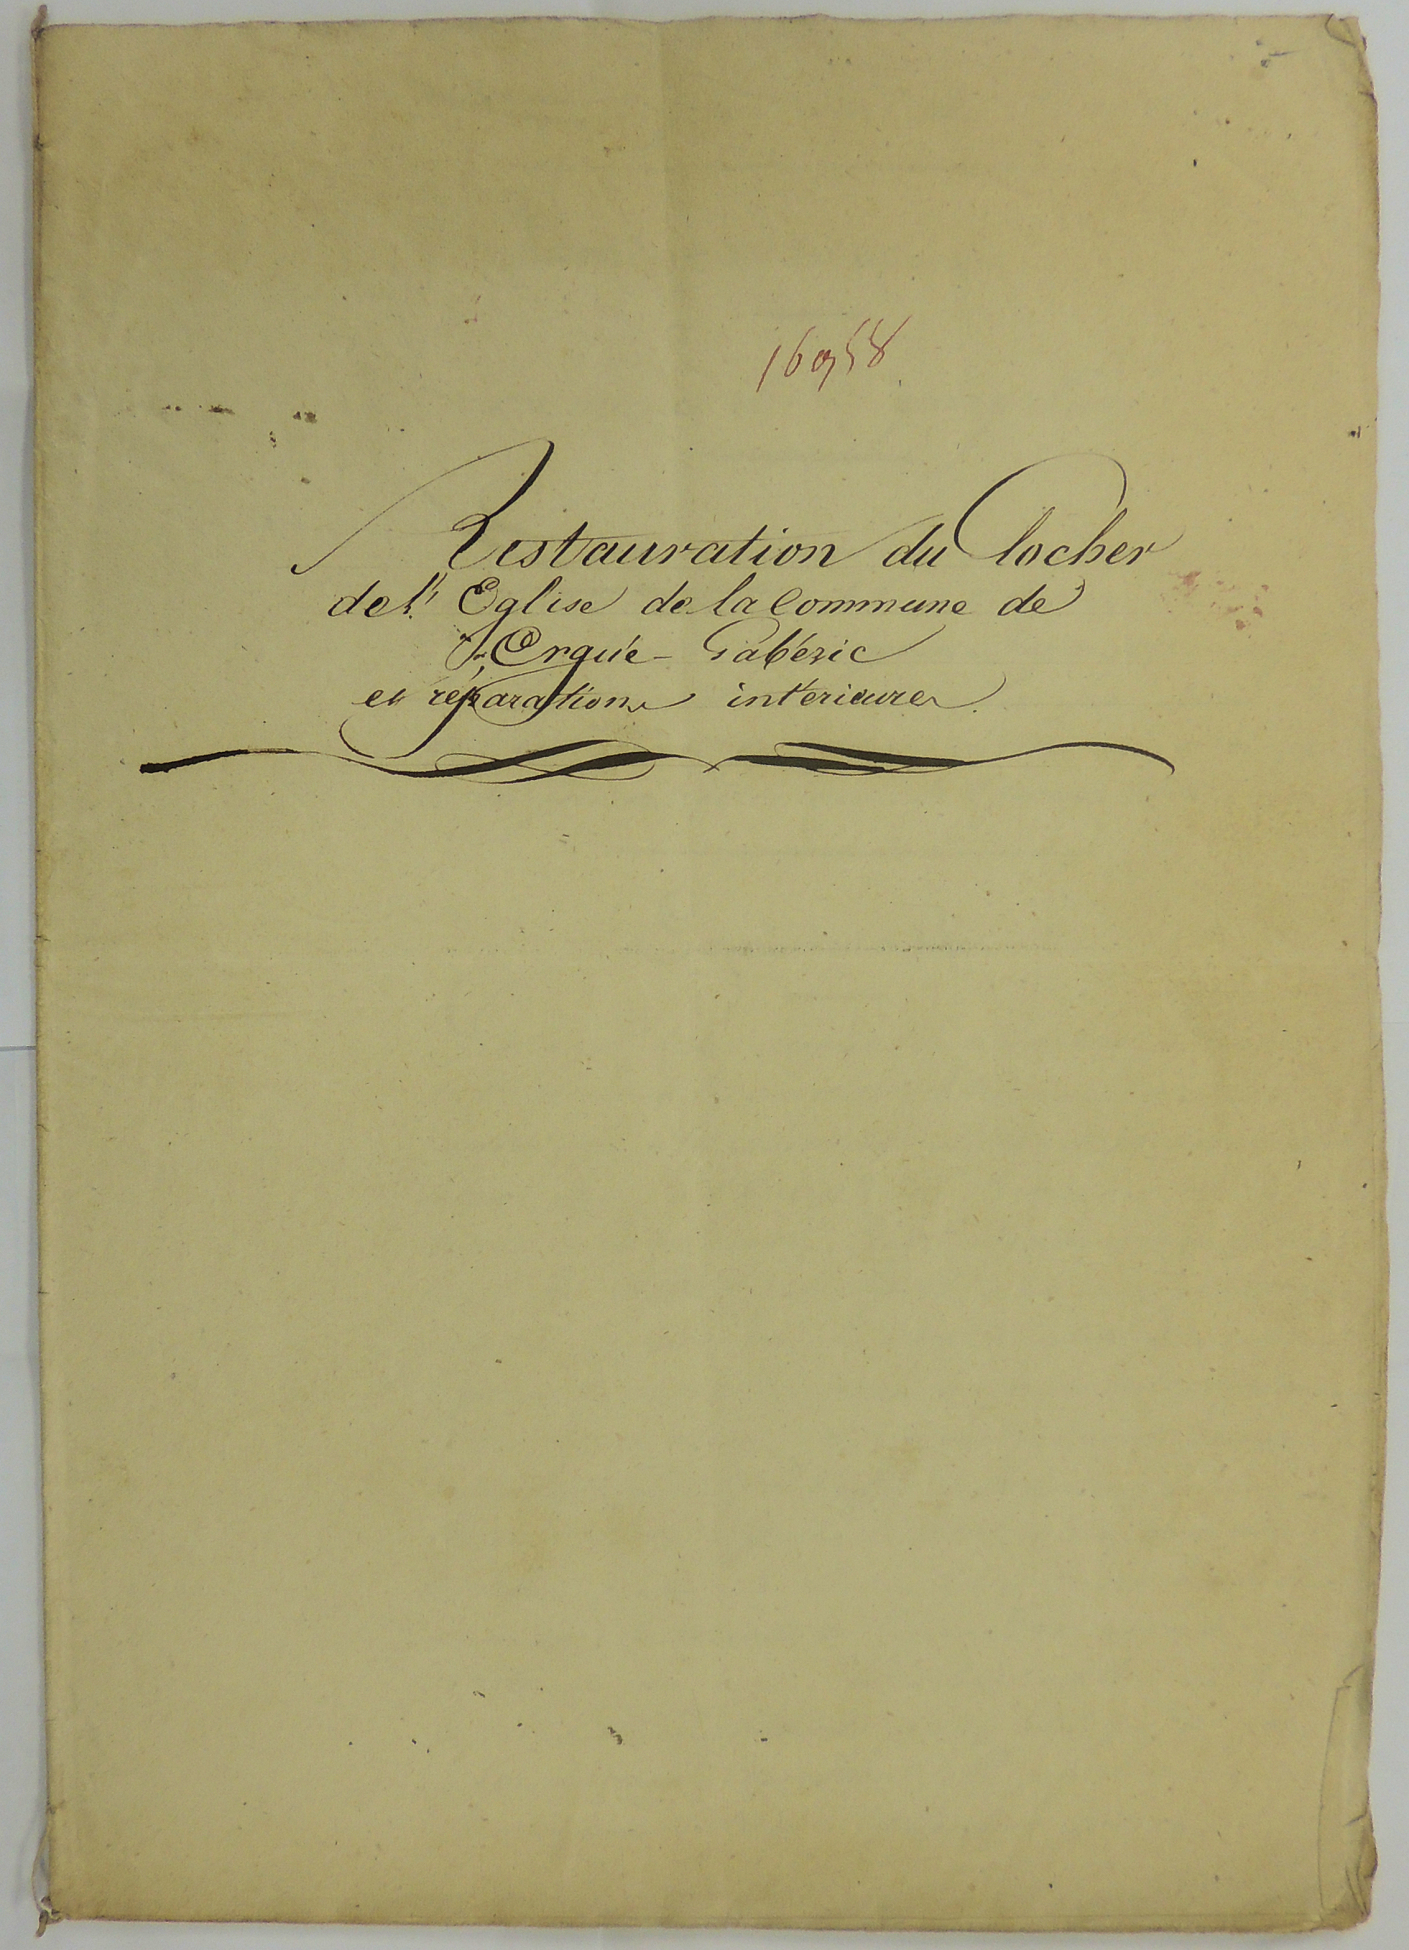 16958
Restauration du Clocher
de l' Eglise de la Commune de
Ergué-Gabéric
et réparations intérieures